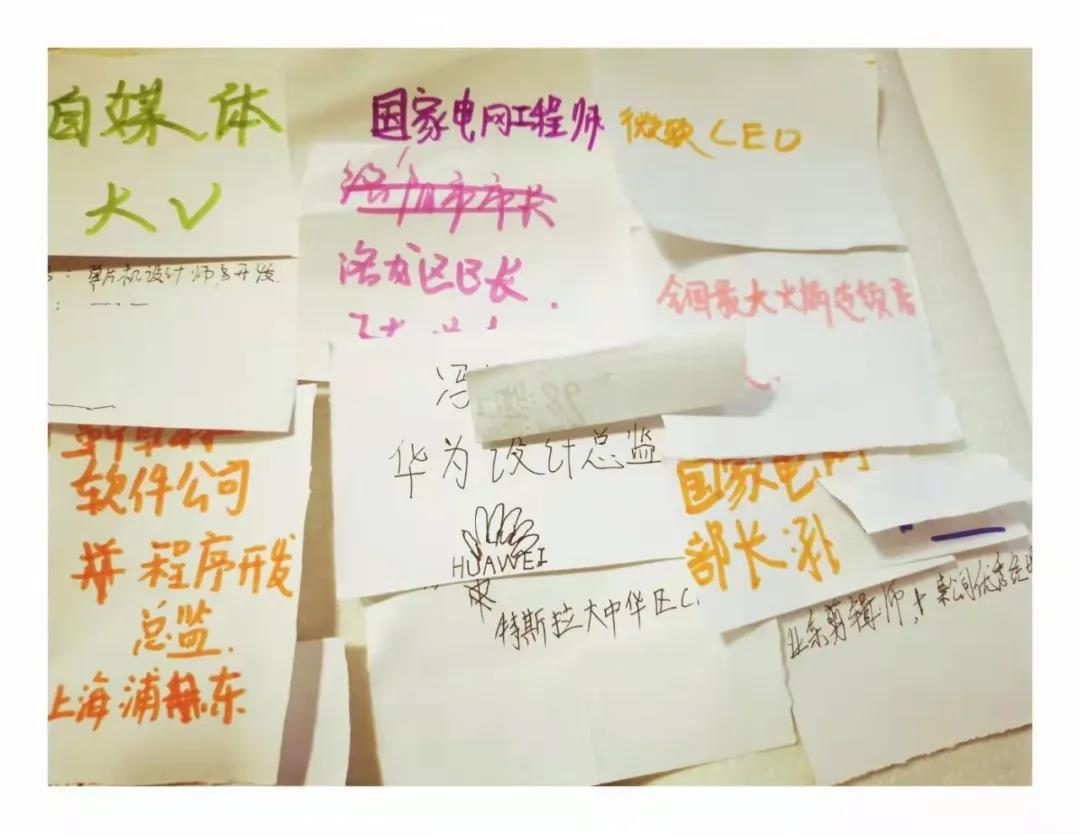 自媒体
大V
单片机设计师与开发
软件公司
程序开发
总监.
上海浦东
国家电网工程师
洛阳市市长
洛龙区区长.
冯
华为设计总监
HUAWEI
特斯拉大中华区C
微软CEO
全国最大火锅连锁店
国家电网
部长
业余剪辑师,